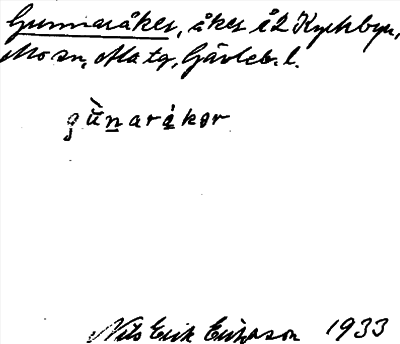 Gunnaråker, åker i 2 Kyrkbyn,
Mo sn, Ala tg, Gävleb. l.
gùnaråkər
Nils Erik Erikson 1933